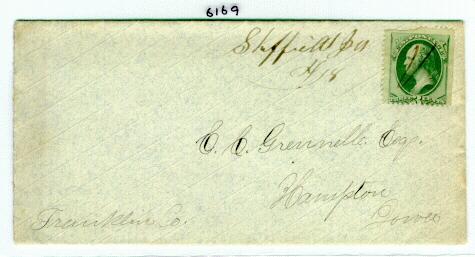 6169
Sheffield Ia
4/18
E. C. Grennelle Esq.
Hampton
Iowa
Franklin Co.